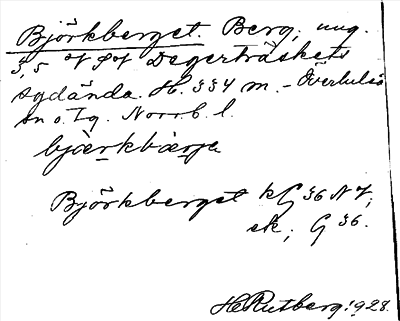 Björkberget. Berg, ung.
3,5 Degerträskets
sydända. H. 334 m. - Överluleå
sn o. tg. Norrb. l.
bjærkbærje
Björkberget kG 36 NV;
ek; G 36.
H. Rutberg. 1928.